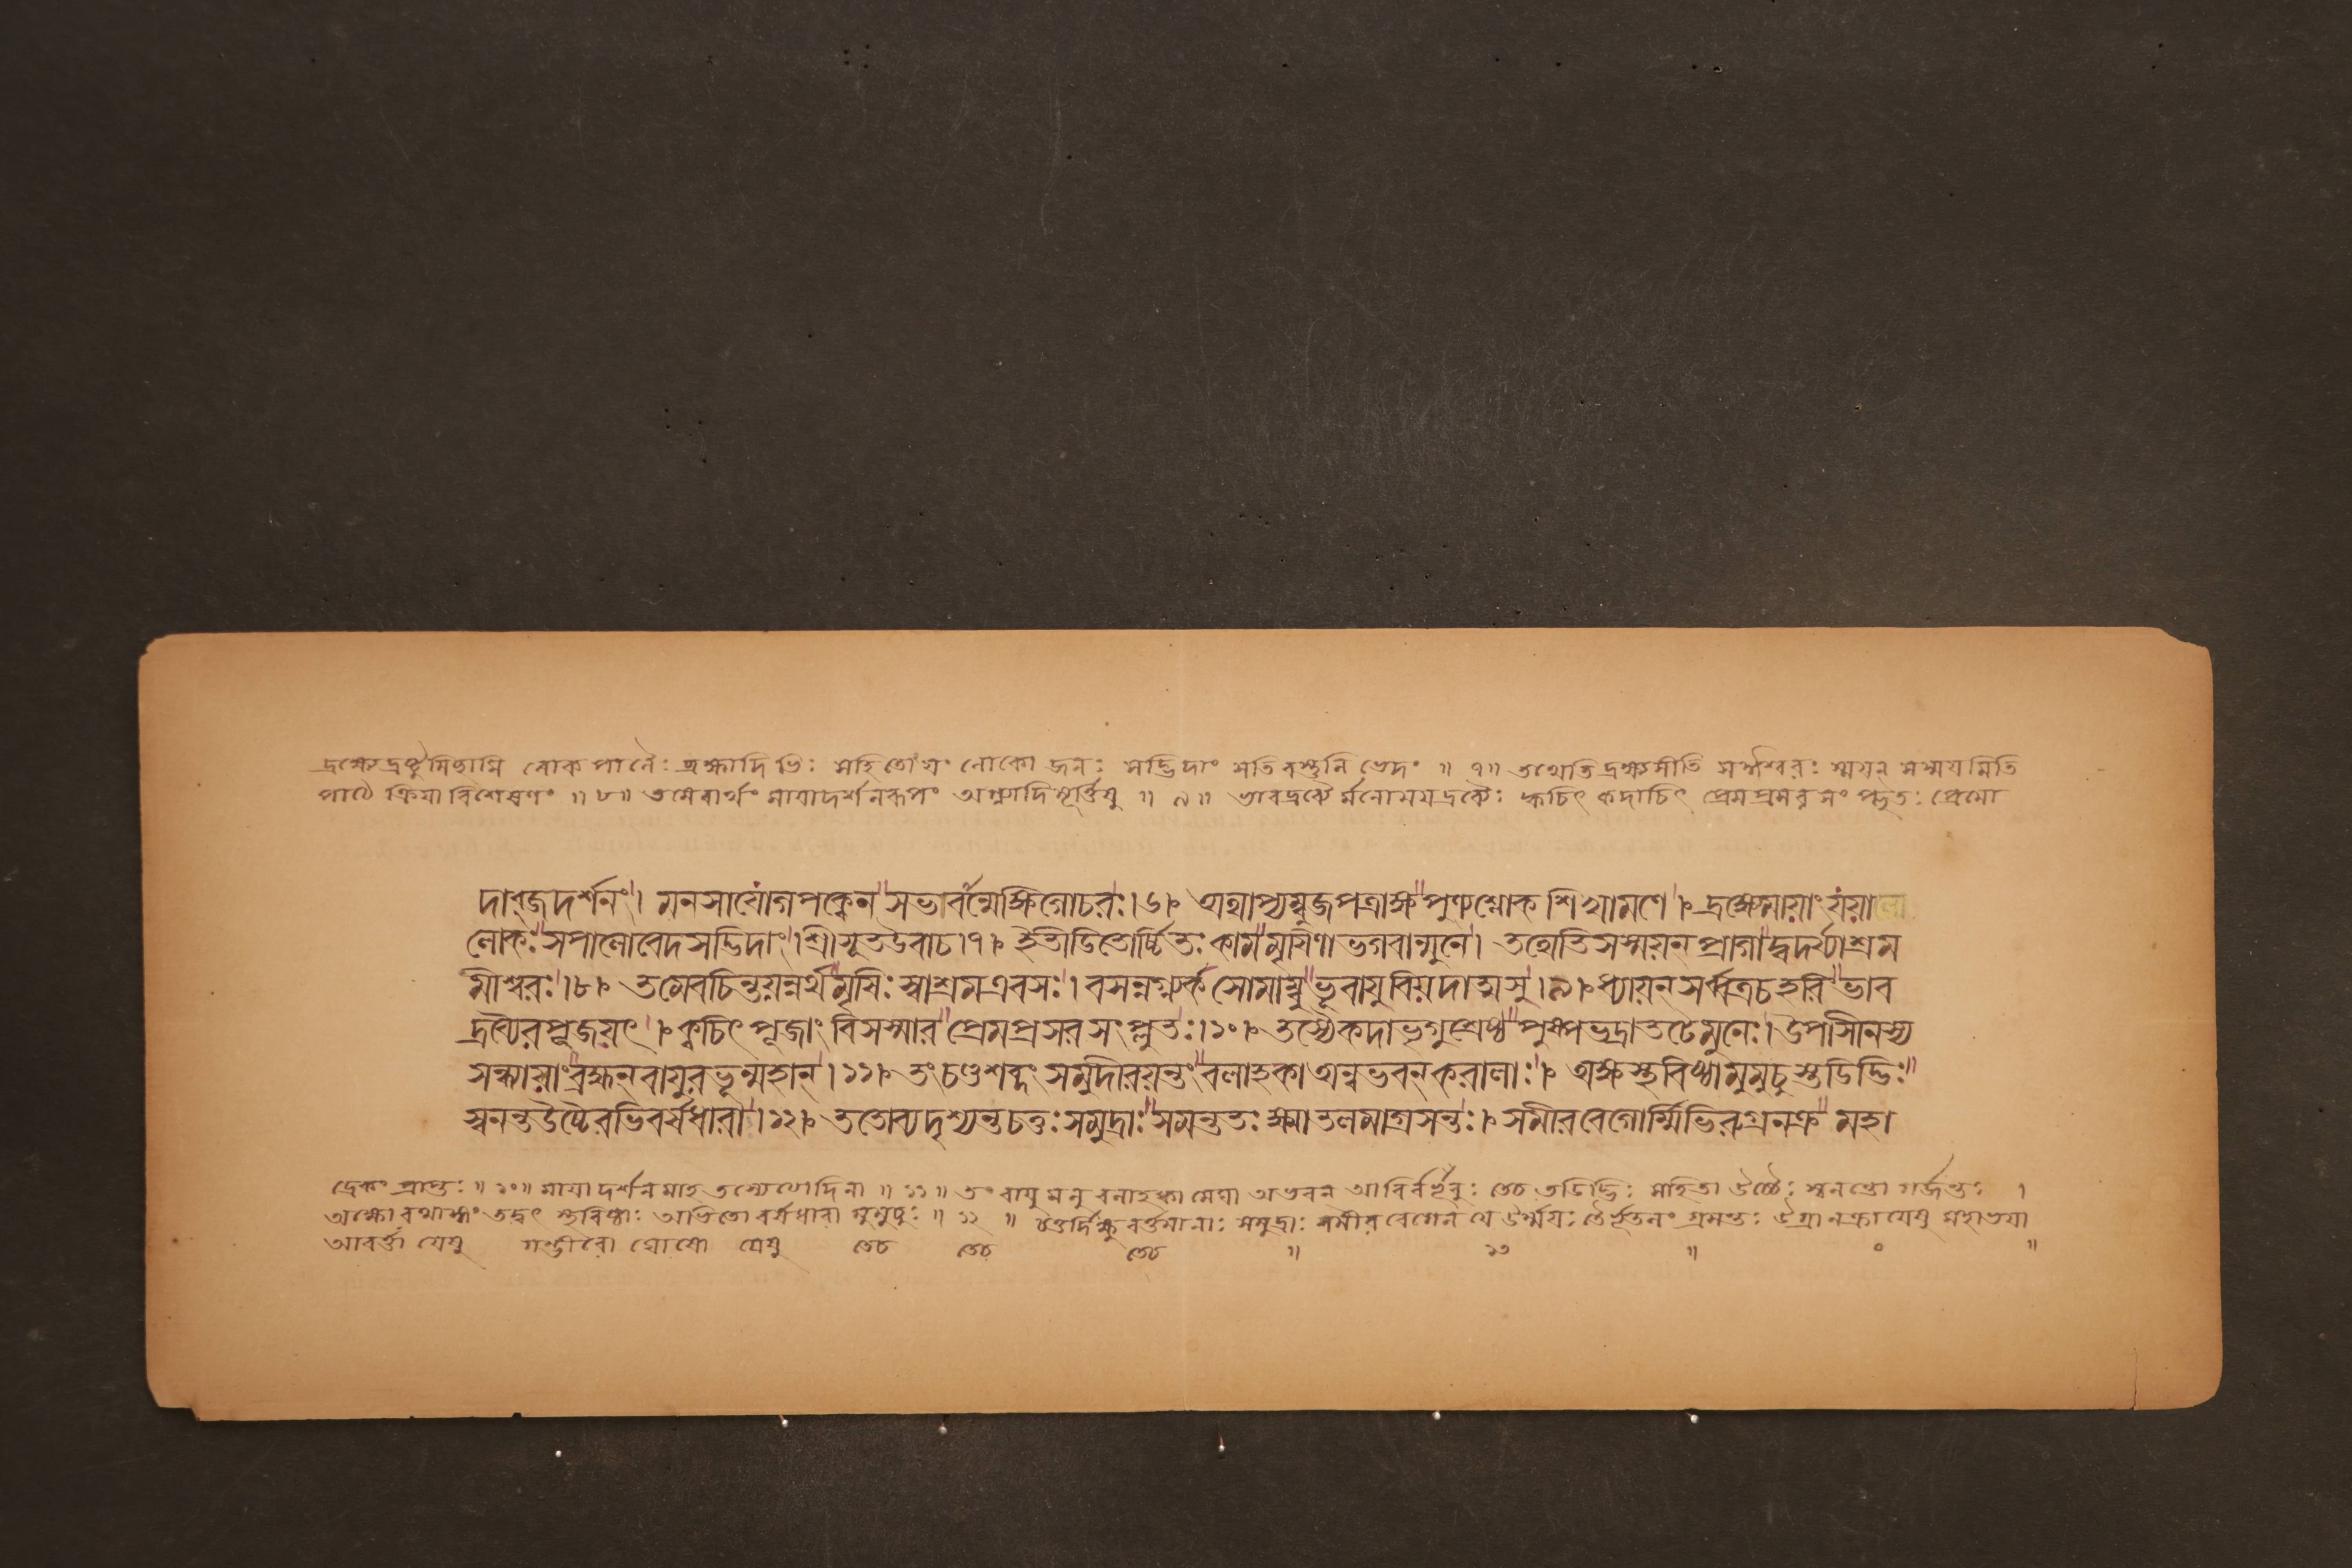 দ্রক্ষ্যে দ্রষ্টুমিচ্ছামি লোকপালৈঃ ব্রহ্মাদিভিঃ সহিতোয়ং লোকো জনঃ সদ্ভিদাং সতি বস্তুনি ভেদং ॥ ৭॥ তথেতি দ্রক্ষ্যসীতি সর্ব্বেশ্বরঃ স্ময়ন সস্ময়মিতি
পাঠে ক্রিয়াবিশেষণং ॥ ৮॥ তমেবার্থং মায়াদর্শনরূপং অগ্ন্যাদিমূর্ত্তিষু ॥ ৯॥ ভাবদ্রব্যৈর্মনোময়দ্রব্যৈঃ ক্বচিৎ কদাচিৎ প্রেমপ্রসরসংপ্লুতঃ প্রেম্নো
দাব্জদর্শনং। মনসাযোগপক্বেন সভাবন্মেক্ষিগোচরঃ।৬। অথাপ্যম্বুজপত্রাক্ষ পুণ্যশ্লোক শিখামণে। দ্রক্ষ্যেমায়াং যয়ালো
লোকঃ সপালোবেদসদ্ভিদাং। শ্রীসূতউবাচ।৭। ইতীডিতোর্চ্চিতঃ কামমৃষিণা ভগবান্মুনে। তথেতিসস্ময়ন প্রাগাদ্বদর্য্যাশ্রম
মীশ্বরঃ।৮। তমেবচিন্তয়ন্নর্থমৃষিঃ স্বাশ্রমএবসঃ। বসন্নগ্ন্যর্কসোমাম্বুভূবায়ুবিয়দাত্মসু।৯। ধ্যায়ন সর্ব্বত্রচহরিং ভাব
দ্রব্যৈরপূজয়ৎ। ক্বচিৎ পূজাং বিসস্মার প্রেমপ্রসরসংপ্লুতঃ।১০। তস্যৈকদাভৃগুশ্রেষ্ঠ পুষ্পভদ্রাতটেমুনেঃ। উপাসীনস্য
সন্ধ্যায়াং ব্রহ্মন বায়ুরভূন্মহান।১১। তং চণ্ডশব্দং সমুদীরয়ন্তং বলাহকা অন্বভবন করালাঃ। অক্ষস্থবিষ্ঠামুমুচুস্তডিদ্ভিঃ
স্বনন্তউচ্চৈরভিবর্ষধারাঃ।১২। ততোব্যদৃশ্যন্তচতুঃসমুদ্রাঃ সমন্ততঃ ক্ষ্মাতলমাগ্রসন্তঃ। সমীরবেগোর্ম্মিভিরুগ্রনক্র মহা
দ্রেকং প্রাপ্তঃ ॥ ১০॥ মায়াদর্শনমাহ তস্যেত্যাদিনা ॥ ১১॥ তং বায়ুমনু বলাহকা মেঘা অভবন আবির্বভূবুঃ তে চ তডিদ্ভিঃ সহিতা উচ্চৈঃ স্বনন্তো গর্জন্তঃ ।
অক্ষো রথাক্ষং তদ্বৎ স্থবিষ্ঠাঃ অভিতো বর্ষধারা মুমুচুঃ ॥ ১২ ॥ চতুর্দিক্ষু বর্ত্তমানাঃ সমুদ্রাঃ সমীরবেগেন যে ঊর্ম্ময়ঃ তৈর্ভূতলং গ্রসন্তঃ উগ্রা নক্রা যেষু মহাভয়া
আবর্ত্তা যেষু গম্ভীরো ঘোষো যেষু তে চ তে চ তে চ ॥ ১৩ ॥ ০ ॥